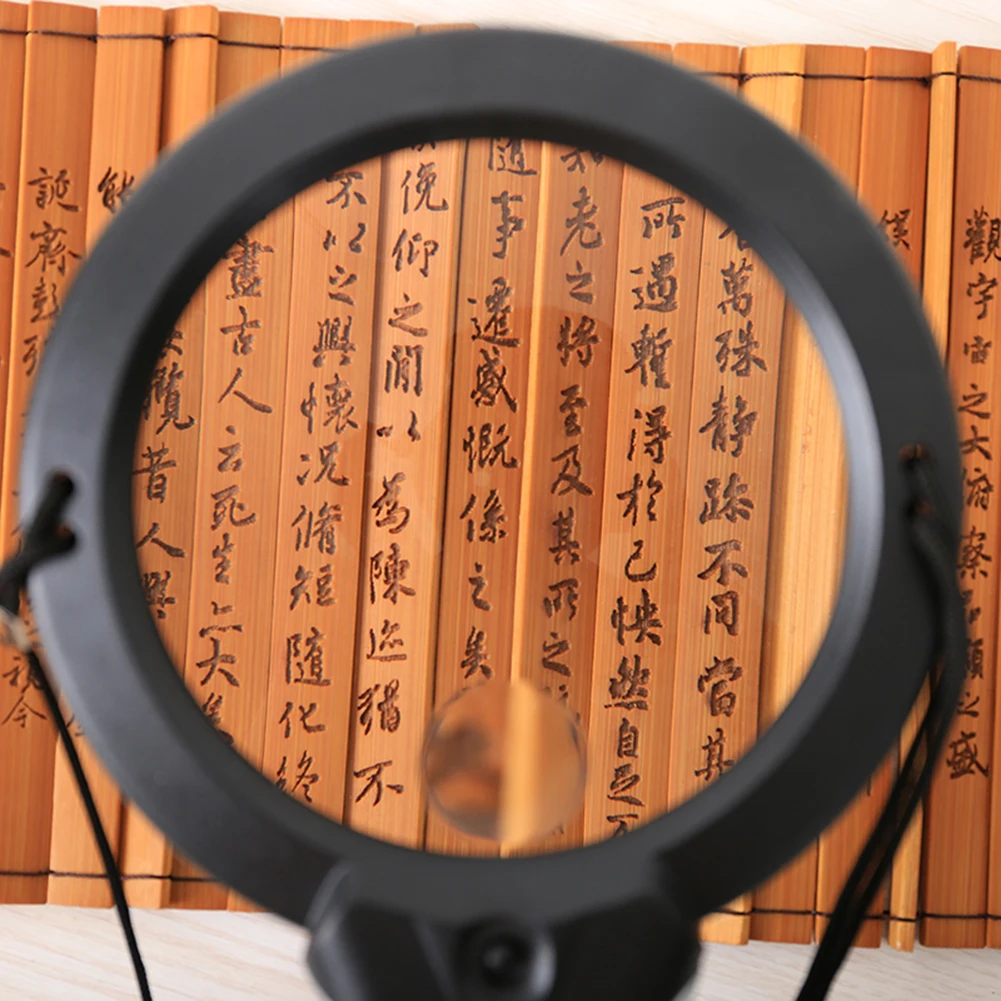 觀宇宙之大俯察
盛
萬殊静躁不同當其
所遇蹔得於己怏然自足不
老之將至及其所之
隨事遷感慨係之矣
俛仰之閒以為陳迹猶不
不以之興懷況脩短隨化終
盡古人云死生亦大矣
攬昔人興
誕齊彭殤